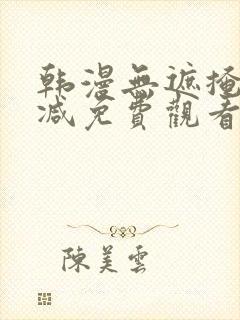 韩漫無遮掩
减免費觀看
陳美雲